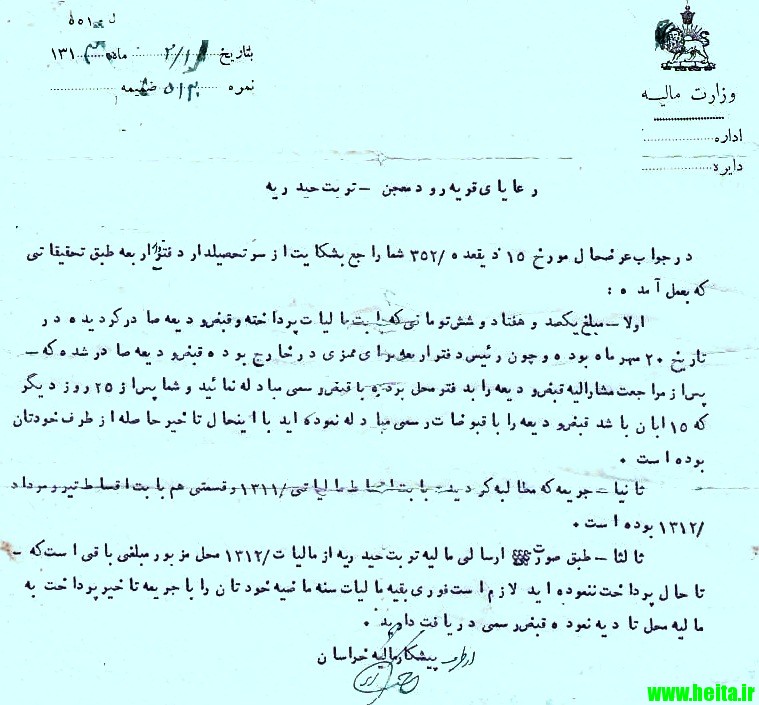 وزارت مالیه
اداره
دایره
بتاریخ ماه ۱۳۱
نمره ضمیمه
رعایای قریه رود معجن – تربت حیدریه
در جواب عرضحال مورخ ۱۵ ذیقعده /۳۵۲ شما راجع بشکایت از سر تحصیلدار دفتر اربعه طبق تحقیقاتی
که بعمل آمده :
اولا – مبلغ یکصد و هفتاد و شش تومانی که بابت مالیات پرداخته و قبض ودیعه صادر گردیده در
تاریخ ۲۰ مهر ماه بوده و چون رئیس دفتر اربعه برای ممیزی در خارج بوده قبض ودیعه صادر شده که –
پس از مراجعت مشارالیه قبض ودیعه را بدفتر محل برده با قبض رسمی مبادله نمائید و شما پس از ۲۵ روز دیگر
که ۱۵ ابان باشد قبض ودیعه را با قبوضات رسمی مبادله نموده اید با اینحال تاخیر حاصله از طرف خودتان
بوده است ۰
ثانیا – جریمه که مطالبه کردیده بابت اقساط مالیاتی /۱۳۱۱ و قسمتی هم بابت اقساط تیر و مرداد
/۱۳۱۲ بوده است ۰
ثالثا – طبق صورت ارسالی مالیه تربت حیدریه از مالیات /۱۳۱۲ محل مزبور مبلغی باقی است که –
تا حال پرداخت ننموده اید لازم است فوری بقیه مالیات سنه ماضیه خودتان را با جریمه تاخیر پرداخت به
مالیه محل تادیه نموده قبض رسمی دریافت دارید ۰
از طرف پیشکار مالیه خراسان
www.heita.ir